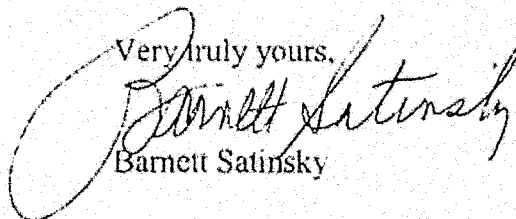 Very truly yours,
Barnett Satinsky
Barnett Satinsky